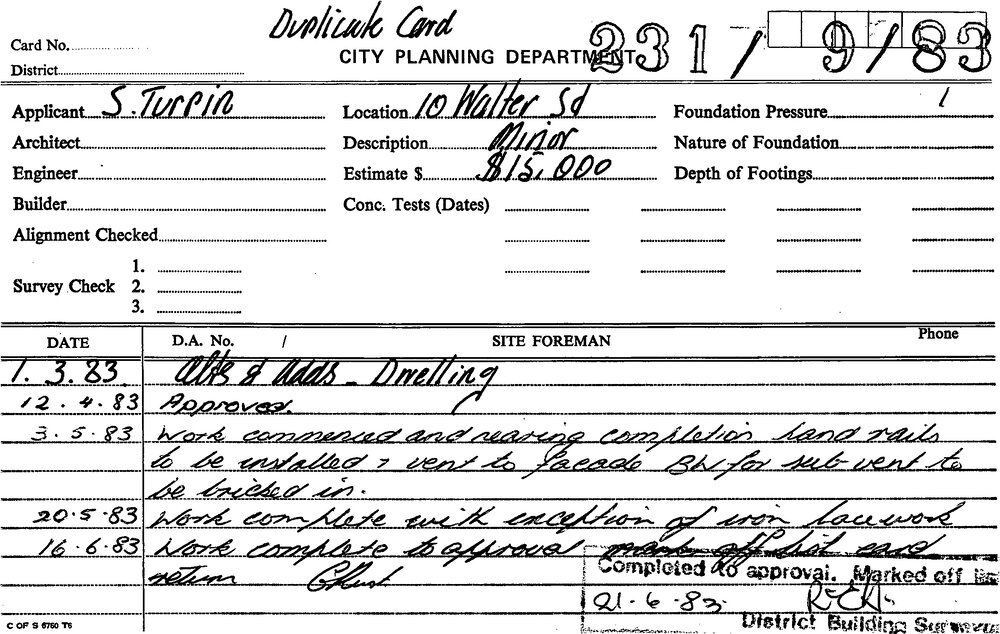 Duplicate Card
Card No.
CITY PLANNING DEPARTMENT
231/ 9/83
District
Applicant S. Turpin
Location 10 Walter Sd
Foundation Pressure
Architect
Description Minor
Nature of Foundation
Engineer
Estimate $ $15,000
Depth of Footings
Builder
Conc. Tests (Dates)
Alignment Checked
1.
Survey Check 2.
3.
DATE D.A. No. / SITE FOREMAN Phone
1. 3. 83 Alts & Adds - Dwelling
12. 4. 83 Approved.
3. 5. 83 Work commenced and nearing completion hand rails
to be installed & vent to facade BW for sub-vent to
be bricked in.
20.5.83 Work complete with exception of iron lacework
16.6.83 Work complete to approval mark off list card
return
Completed to approval. Marked off
21. 6. 83
District Building Surveyor
C OF S 6760 T6